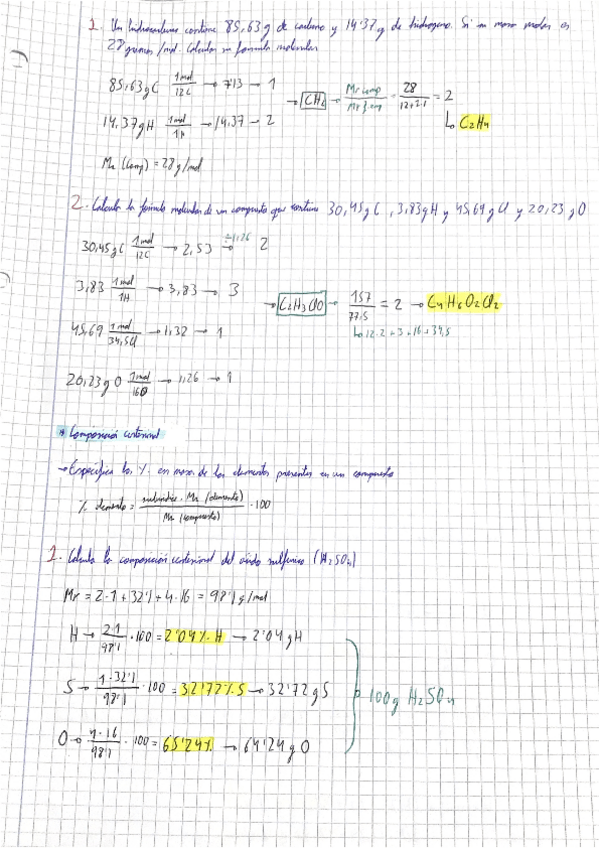 1. Un hidrocarburo contiene 85,63 g de carbono y 14'37 g de hidrogeno. Si su masa molar es
28 gramos/mol. Calcular su formula molecular
85,63 g C 1 mol / 12 C → 7'13 → 1
14,37 g H 1 mol / 1 H → 14,37 → 2
→ CH2 → Mr comp / Mr f emp = 28 / 12+2·1 = 2
↳ C2H4
Mr (comp) = 28 g/mol
2. Calcula la formula molecular de un compuesto que contiene 30,45 g C, 3,83 g H y 45,69 g Cl y 20,23 g O
30,45 g C 1 mol / 12 C → 2,53 ÷1,26 → 2
3,83 1 mol / 1 H → 3,83 → 3
→ C2H3ClO → 157 / 77,5 = 2 → C4H6O2Cl2
↳ 12·2+3+16+34,5
45,69 1 mol / 34,5 Cl → 1,32 → 1
20,23 g O 1 mol / 16 O → 1,26 → 1
* Composición centesimal
→ Especifica los % en masa de los elementos presentes en un compuesto
% elemento = subindice · Mr (elemento) / Mr (compuesto) · 100
1. Calcula la composición centesimal del ácido sulfúrico (H2SO4)
Mr = 2·1 + 32'1 + 4·16 = 98'1 g/mol
H → 2·1 / 98'1 · 100 = 2'04 % H → 2'04 g H
S → 1·32'1 / 98'1 · 100 = 32'72 % S → 32'72 g S
100 g H2SO4
O → 4·16 / 98'1 · 100 = 65'24 % → 64'24 g O